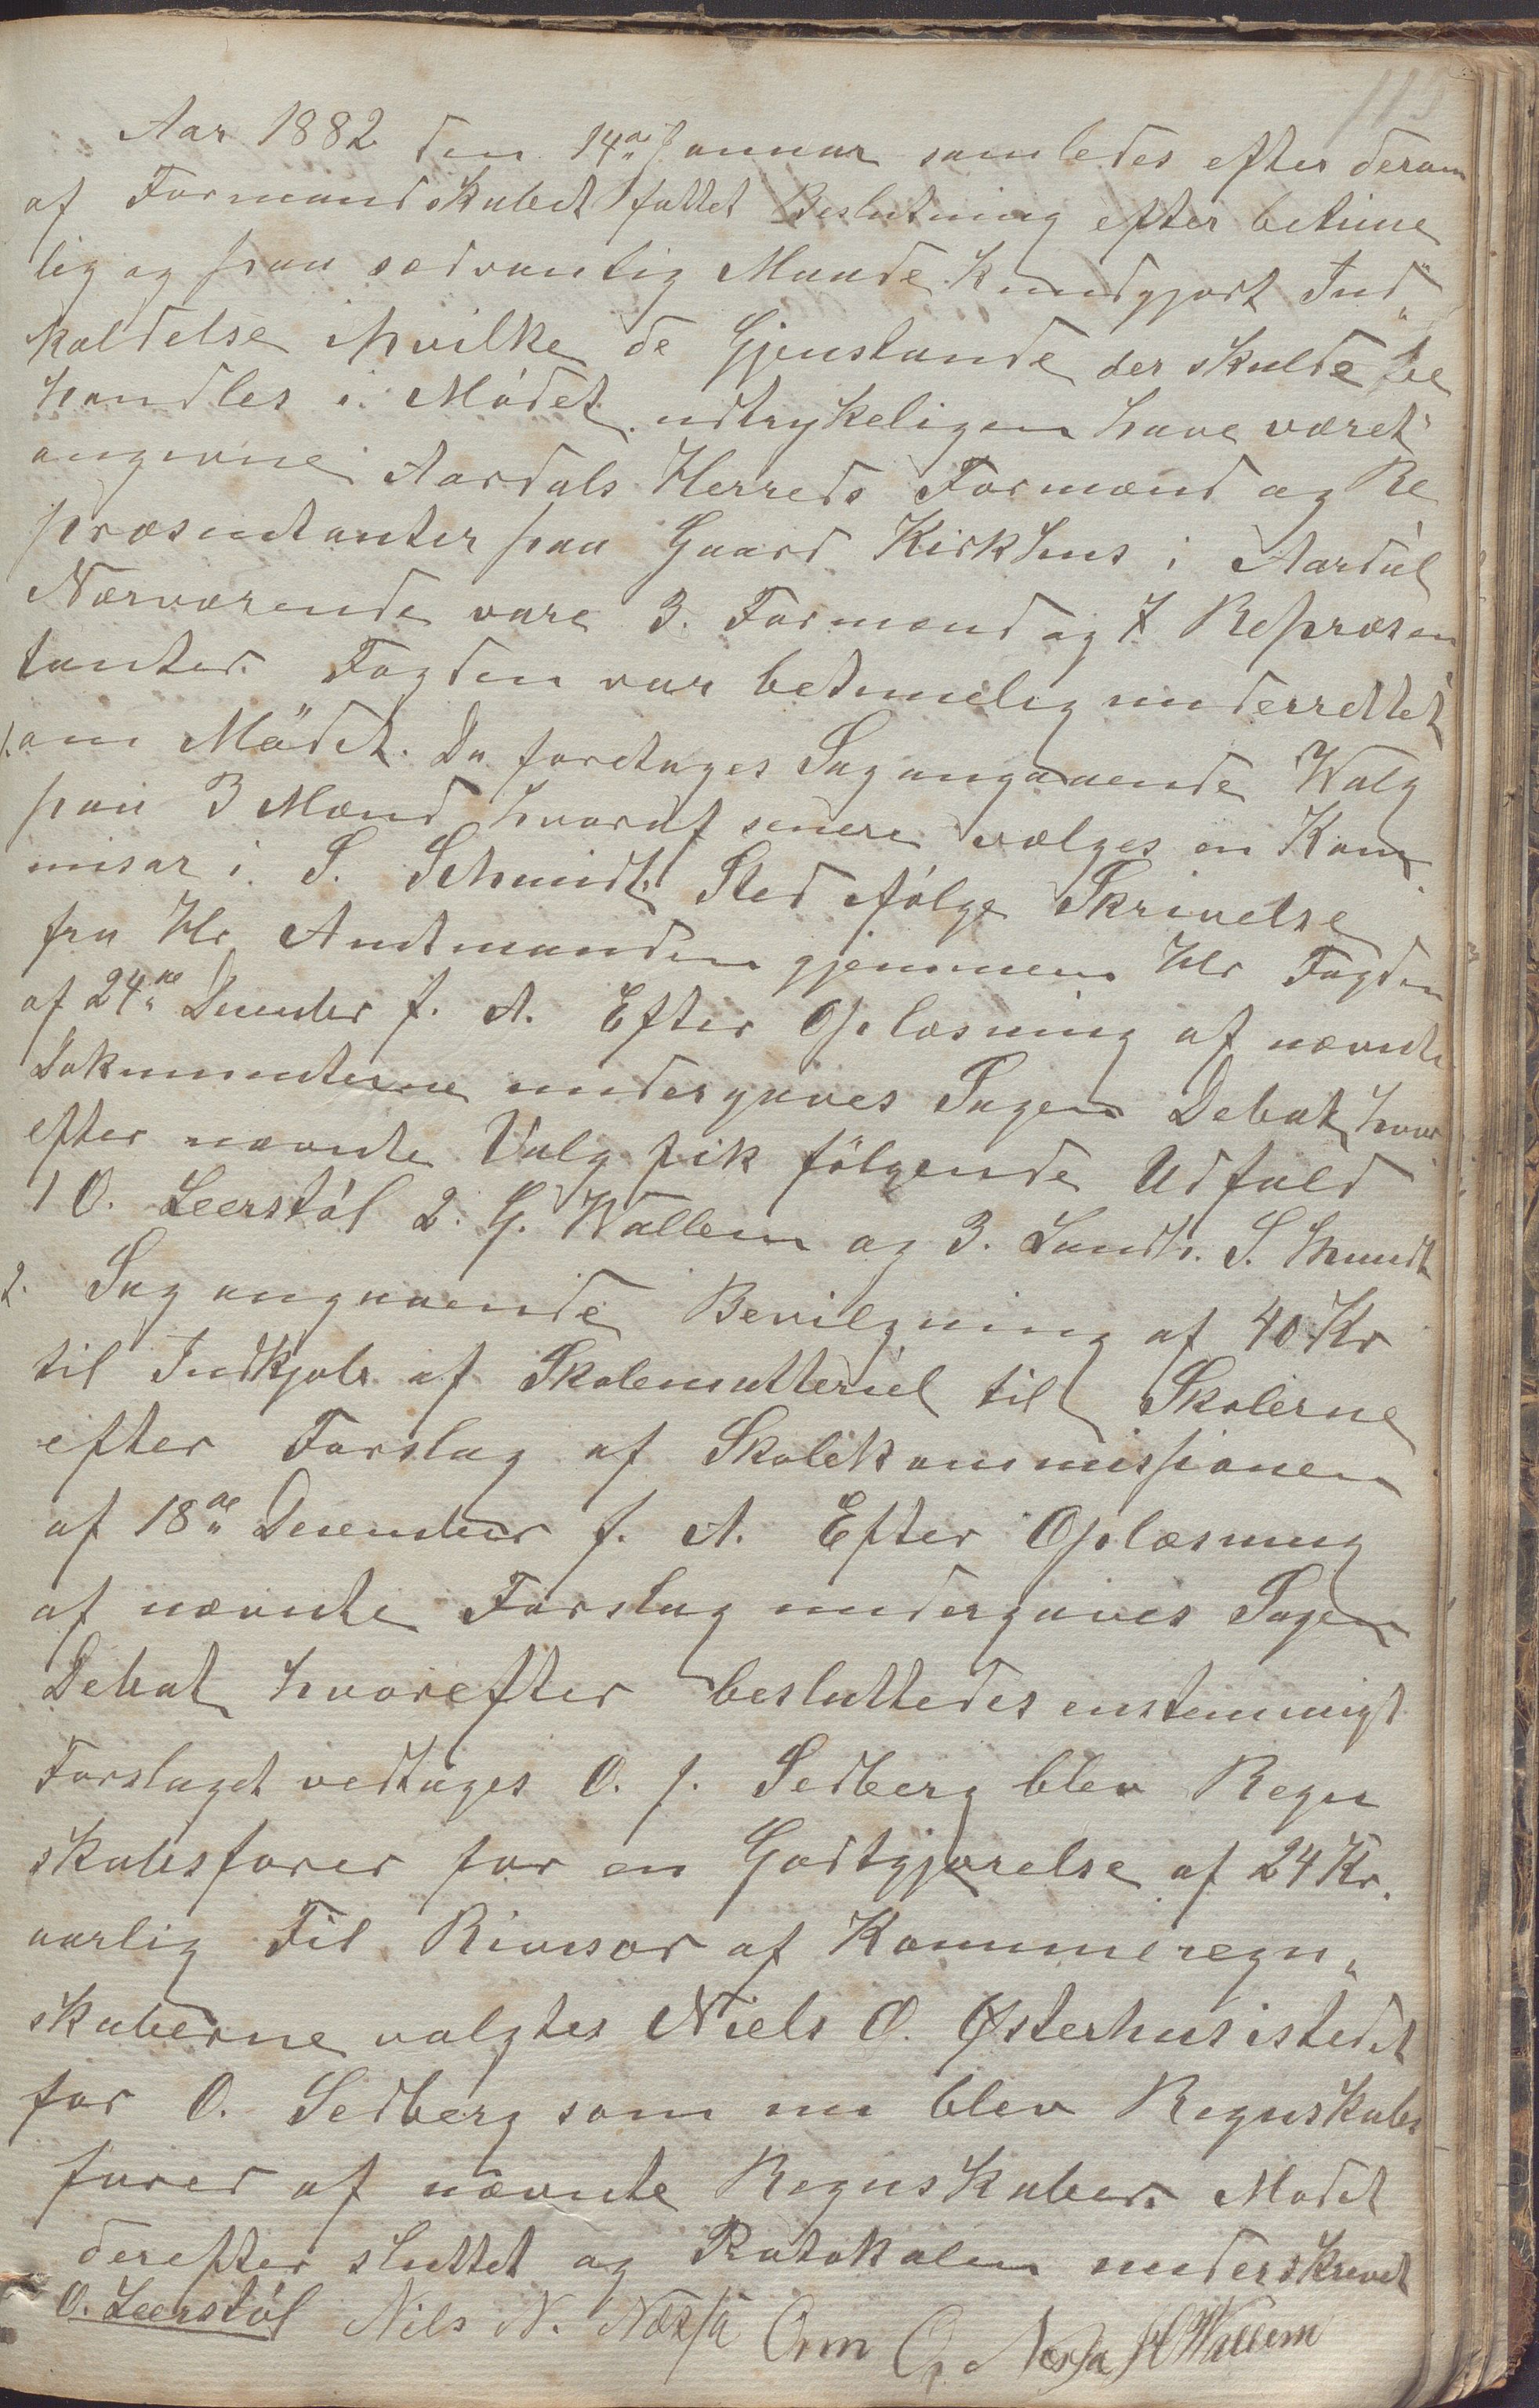 115
Aar 1882 den 14de Januar samledes efter derom
af Formandskabet fattet Beslutning efter betime
lig og paa sædvanlig Maade Kundgjort Ind„
kaldelse ihvilke de Gjenstande der skulde be
handles i Mödet udtrykeligen have været
angivne Aardals Herreds Formænd og Re
præsentanter paa Gaard Kirkhus i Aardal
Nærværende vare 3. Formænd og 7 Repræsen
tanter. Fogden var betimelig underrettet
1. om Mödet. Da foretages Sag angaaende Walg
paa 3 Mænd hvoraf senere vælges en Kom
misær i S. Schmidts Sted ifölge Skrivelse
fra Hr Amtmanden gjennem Hr Fogden
af 24de December f. A. Efter Oplæsning af nævnte
Dokumenterne undergaves Sagen Debat hvor
efter nævnte Valg fik fölgende Udfald
1 O. Leerstöl 2. G. Wallem og 3. Landh. S. Smidt
2. Sag angaaende Bevilgning af 40 Kr
til Indkjob af Skolematteriel til Skolerne
efter Forslag af Skolekommissionen
af 18de December f. A. Efter Oplæsning
af nævnte Forslag undergaves Sagen
Debat hvorefter besluttedes enstemmigt
Forslaget vedtages O. J. Sedberg blev Regn
skabsforer for en Godtgjørelse af 24 Kr.
aarlig Til Rivisor af Kommuneregn„
skaberne valgtes Niels O. Østerhus istedet
for O. Sedberg som nu blev Regnskabs
forer af nævnte Regnskaber. Modet
derefter sluttet og Protokolen underskrevet
O. Leerstöl Nils N. Næsså Orm O. Næssa H Wallem